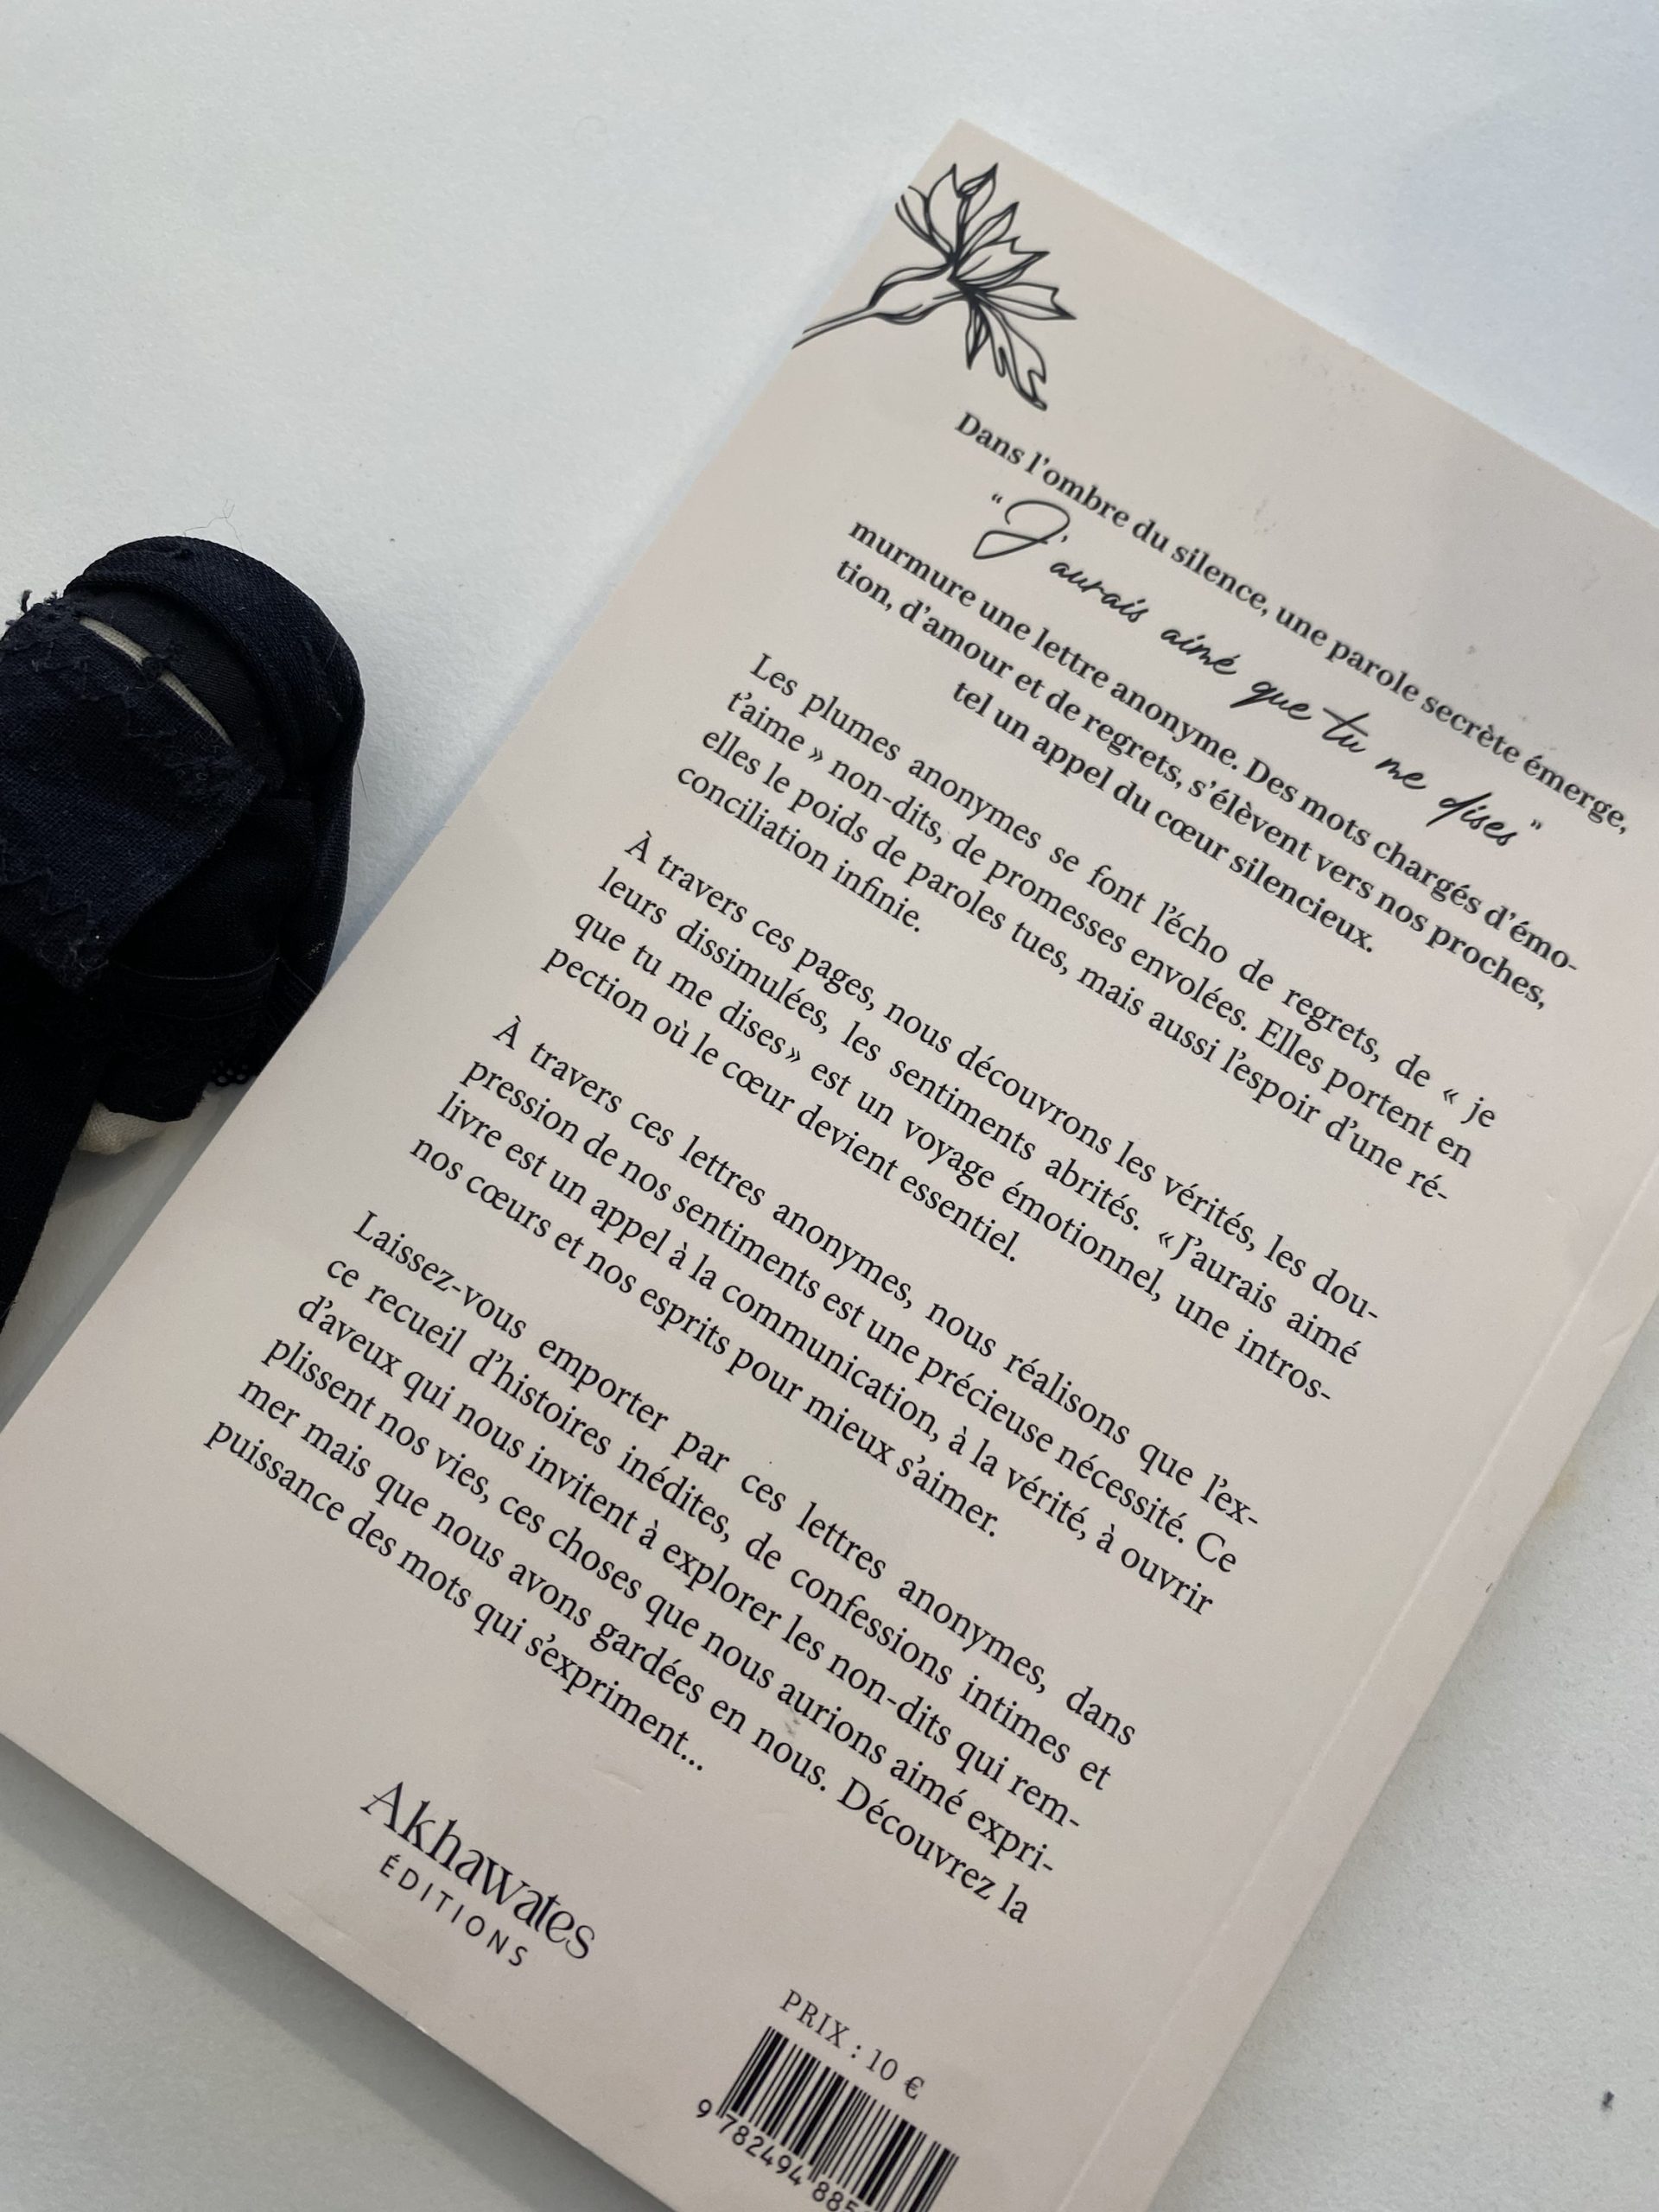 Dans l'ombre du silence, une parole secrète émerge,
"J'aurais aimé que tu me dises"
murmure une lettre anonyme. Des mots chargés d'émo-
tion, d'amour et de regrets, s'élèvent vers nos proches,
tel un appel du cœur silencieux.
Les plumes anonymes se font l'écho de regrets, de « je
t'aime » non-dits, de promesses envolées. Elles portent en
elles le poids de paroles tues, mais aussi l'espoir d'une ré-
conciliation infinie.
À travers ces pages, nous découvrons les vérités, les dou-
leurs dissimulées, les sentiments abrités. « J'aurais aimé
que tu me dises» est un voyage émotionnel, une intros-
pection où le cœur devient essentiel.
À travers ces lettres anonymes, nous réalisons que l'ex-
pression de nos sentiments est une précieuse nécessité. Ce
livre est un appel à la communication, à la vérité, à ouvrir
nos cœurs et nos esprits pour mieux s'aimer.
Laissez-vous emporter par ces lettres anonymes, dans
ce recueil d'histoires inédites, de confessions intimes et
d'aveux qui nous invitent à explorer les non-dits qui rem-
plissent nos vies, ces choses que nous aurions aimé expri-
mer mais que nous avons gardées en nous. Découvrez la
puissance des mots qui s'expriment...
Akhawates
ÉDITIONS
PRIX : 10 €
9 782494 885